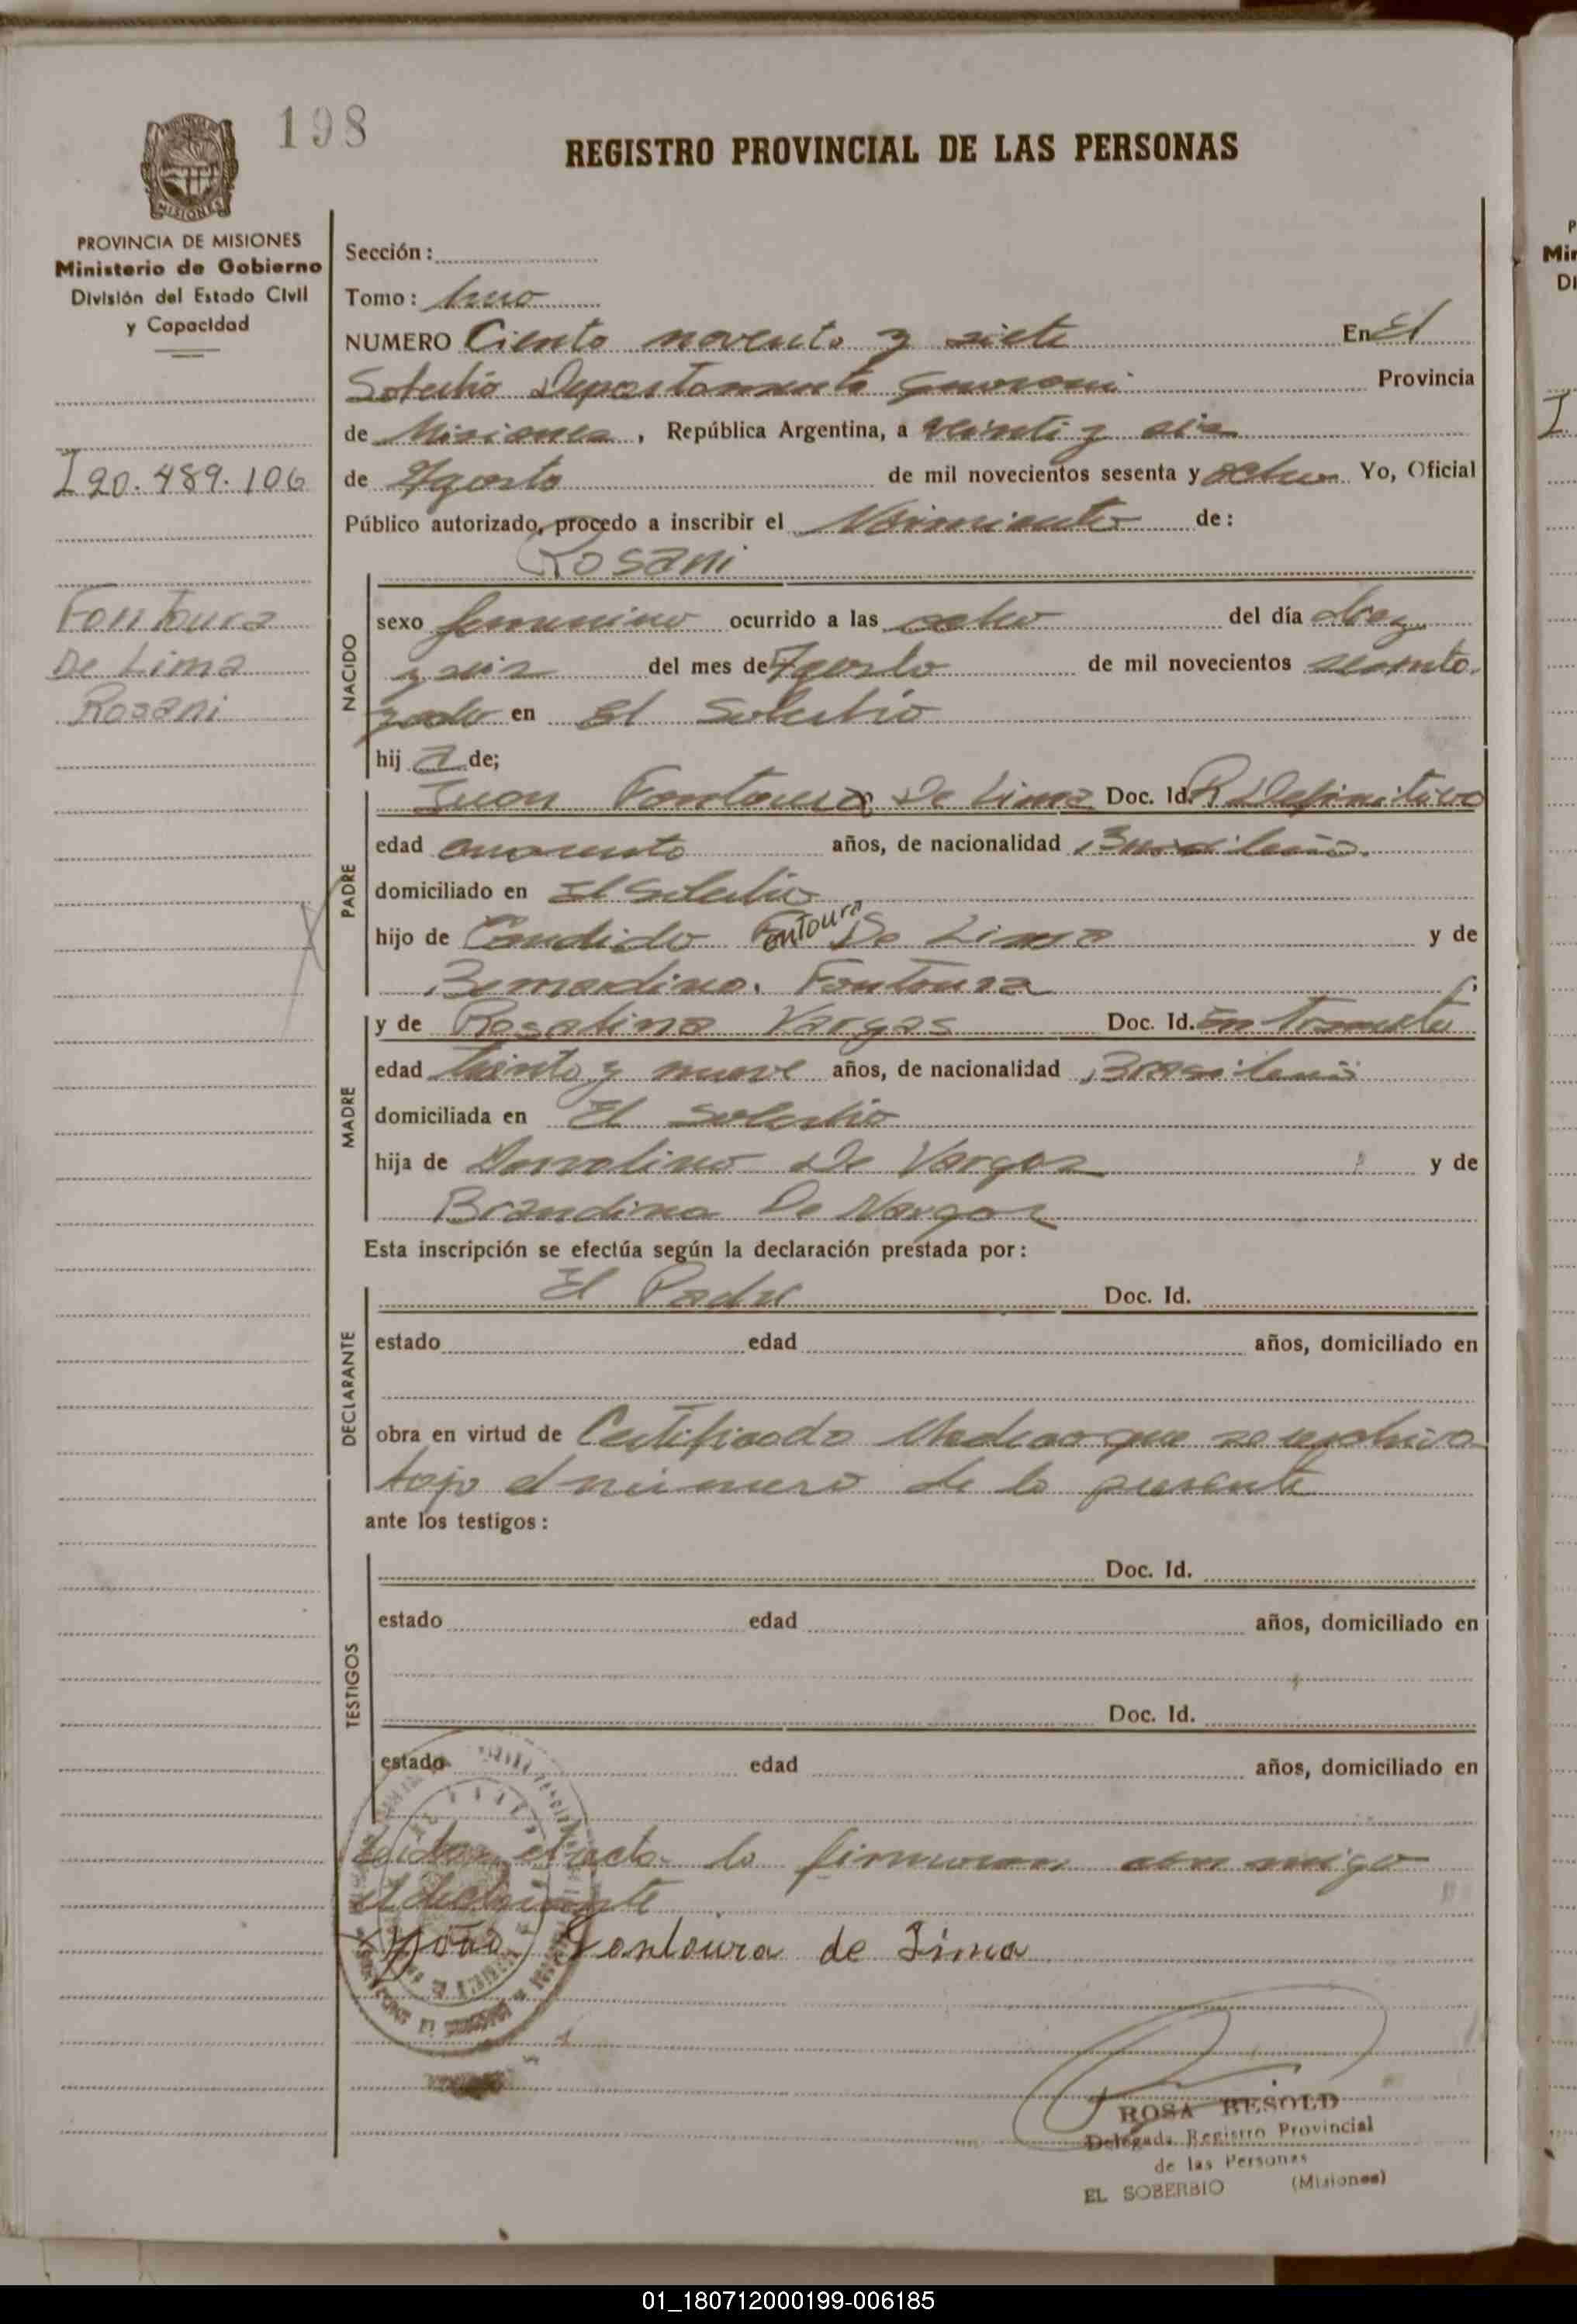 198
REGISTRO PROVINCIAL DE LAS PERSONAS
MISIONES
PROVINCIA DE MISIONES
Ministerio de Gobierno
División del Estado Civil
y Capacidad
I 20.489.106
Fontoura
De Lima
Rosani
Sección:
Tomo: Uno
NUMERO Ciento noventa y siete En El
Soberbio Departamento Guarani Provincia
de Misiones, República Argentina, a veinti y seis
de Agosto de mil novecientos sesenta y ocho Yo, Oficial
Público autorizado, procedo a inscribir el Nacimiento de:
Rosani
NACIDO
sexo femenino ocurrido a las ocho del día diez
y seis del mes de Agosto de mil novecientos sesenta
y ocho en El Soberbio
hij a de;
PADRE
Juan Fontoura De Lima Doc. Id. R Definitivo
edad cuarenta años, de nacionalidad Brasileña
domiciliado en El Soberbio
hijo de Candido Fontoura De Lima y de
Bernardina Fontoura
MADRE
y de Rosalina Vargas Doc. Id. En Tramite
edad treinta y nueve años, de nacionalidad Brasileña
domiciliada en El Soberbio
hija de De Vargas y de
Brandina De Vargas
Esta inscripción se efectúa según la declaración prestada por:
DECLARANTE
El Padre Doc. Id.
estado edad años, domiciliado en
obra en virtud de Certificado Medico que se archiva
bajo el número de la presente
ante los testigos:
TESTIGOS
Doc. Id.
estado edad años, domiciliado en
Doc. Id.
estado edad años, domiciliado en
el acta la firmaron con migo
el declarante
João Fontoura de Lima
ROSA BESOLD
Delegada Registro Provincial
de las Personas
EL SOBERBIO (Misiones)
01_180712000199-006185